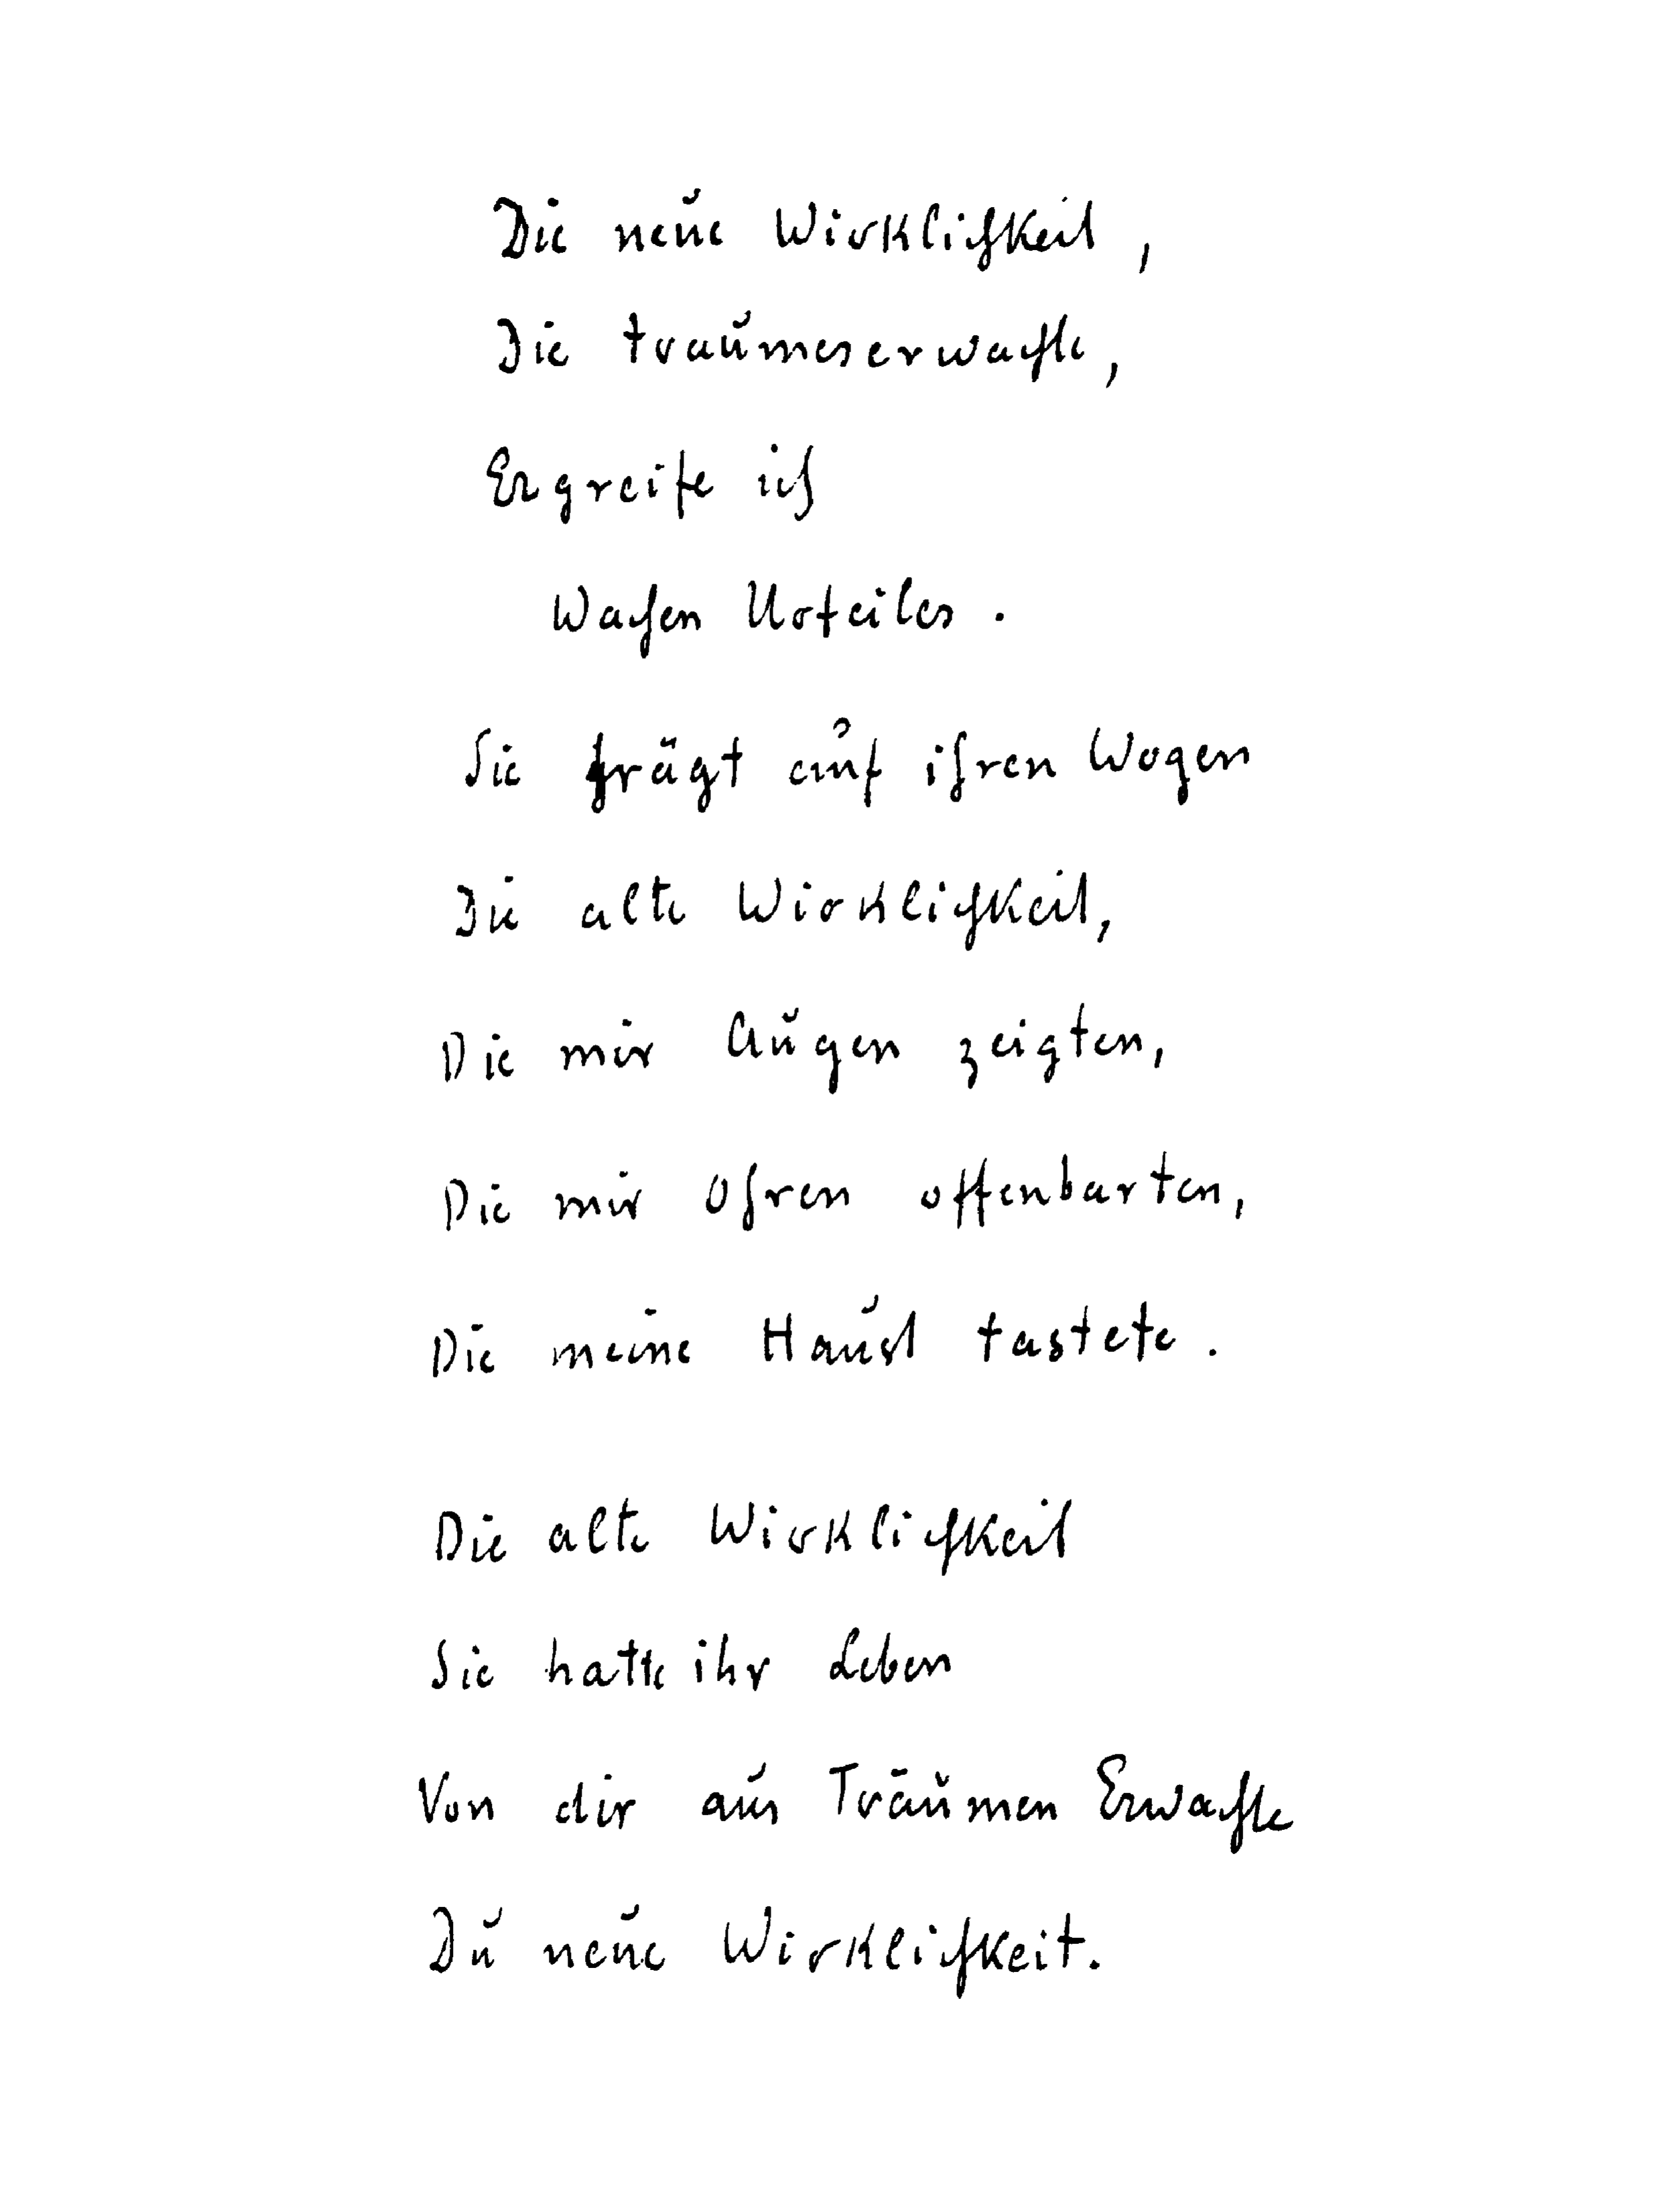 Die neue Wirklichkeit,
Die traumeserwachte,
Ergreife ich
Wachen Urteiles.
Sie trägt auf ihren Wogen
Die alte Wirklichkeit,
Die mir Augen zeigten,
Die mir Ohren offenbarten,
Die meine tastete.
Die alte Wirklichkeit
Sie hatte ihr Leben
Von dir aus Träumen Erwachte
Du neue Wirklichkeit.